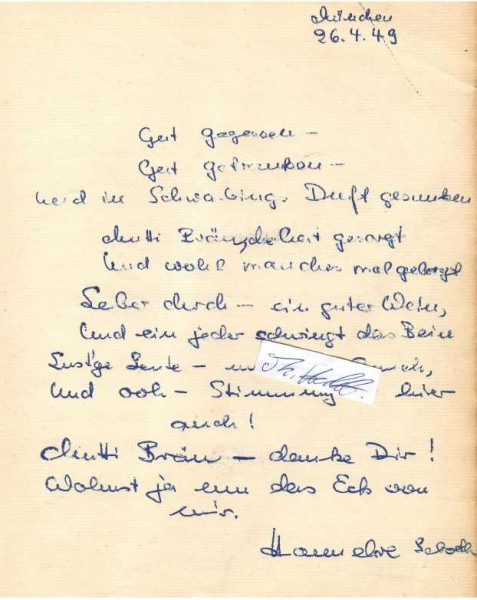 München
26.4.49
Gut gegessen –
Gut getrunken –
Und in Schwabings Duft gesunken
Mutti Bräu, die hat gesorgt
Und wohl manches mal geborgt
Leber durch – ein guter Wein,
Und ein jeder schwingt das Bein
Lust'ge Leute –
Und ooh – Stimmung hier
auch!
Mutti Bräu – danke Dir!
Wohnst ja um das Eck von
mir.
Hannelore